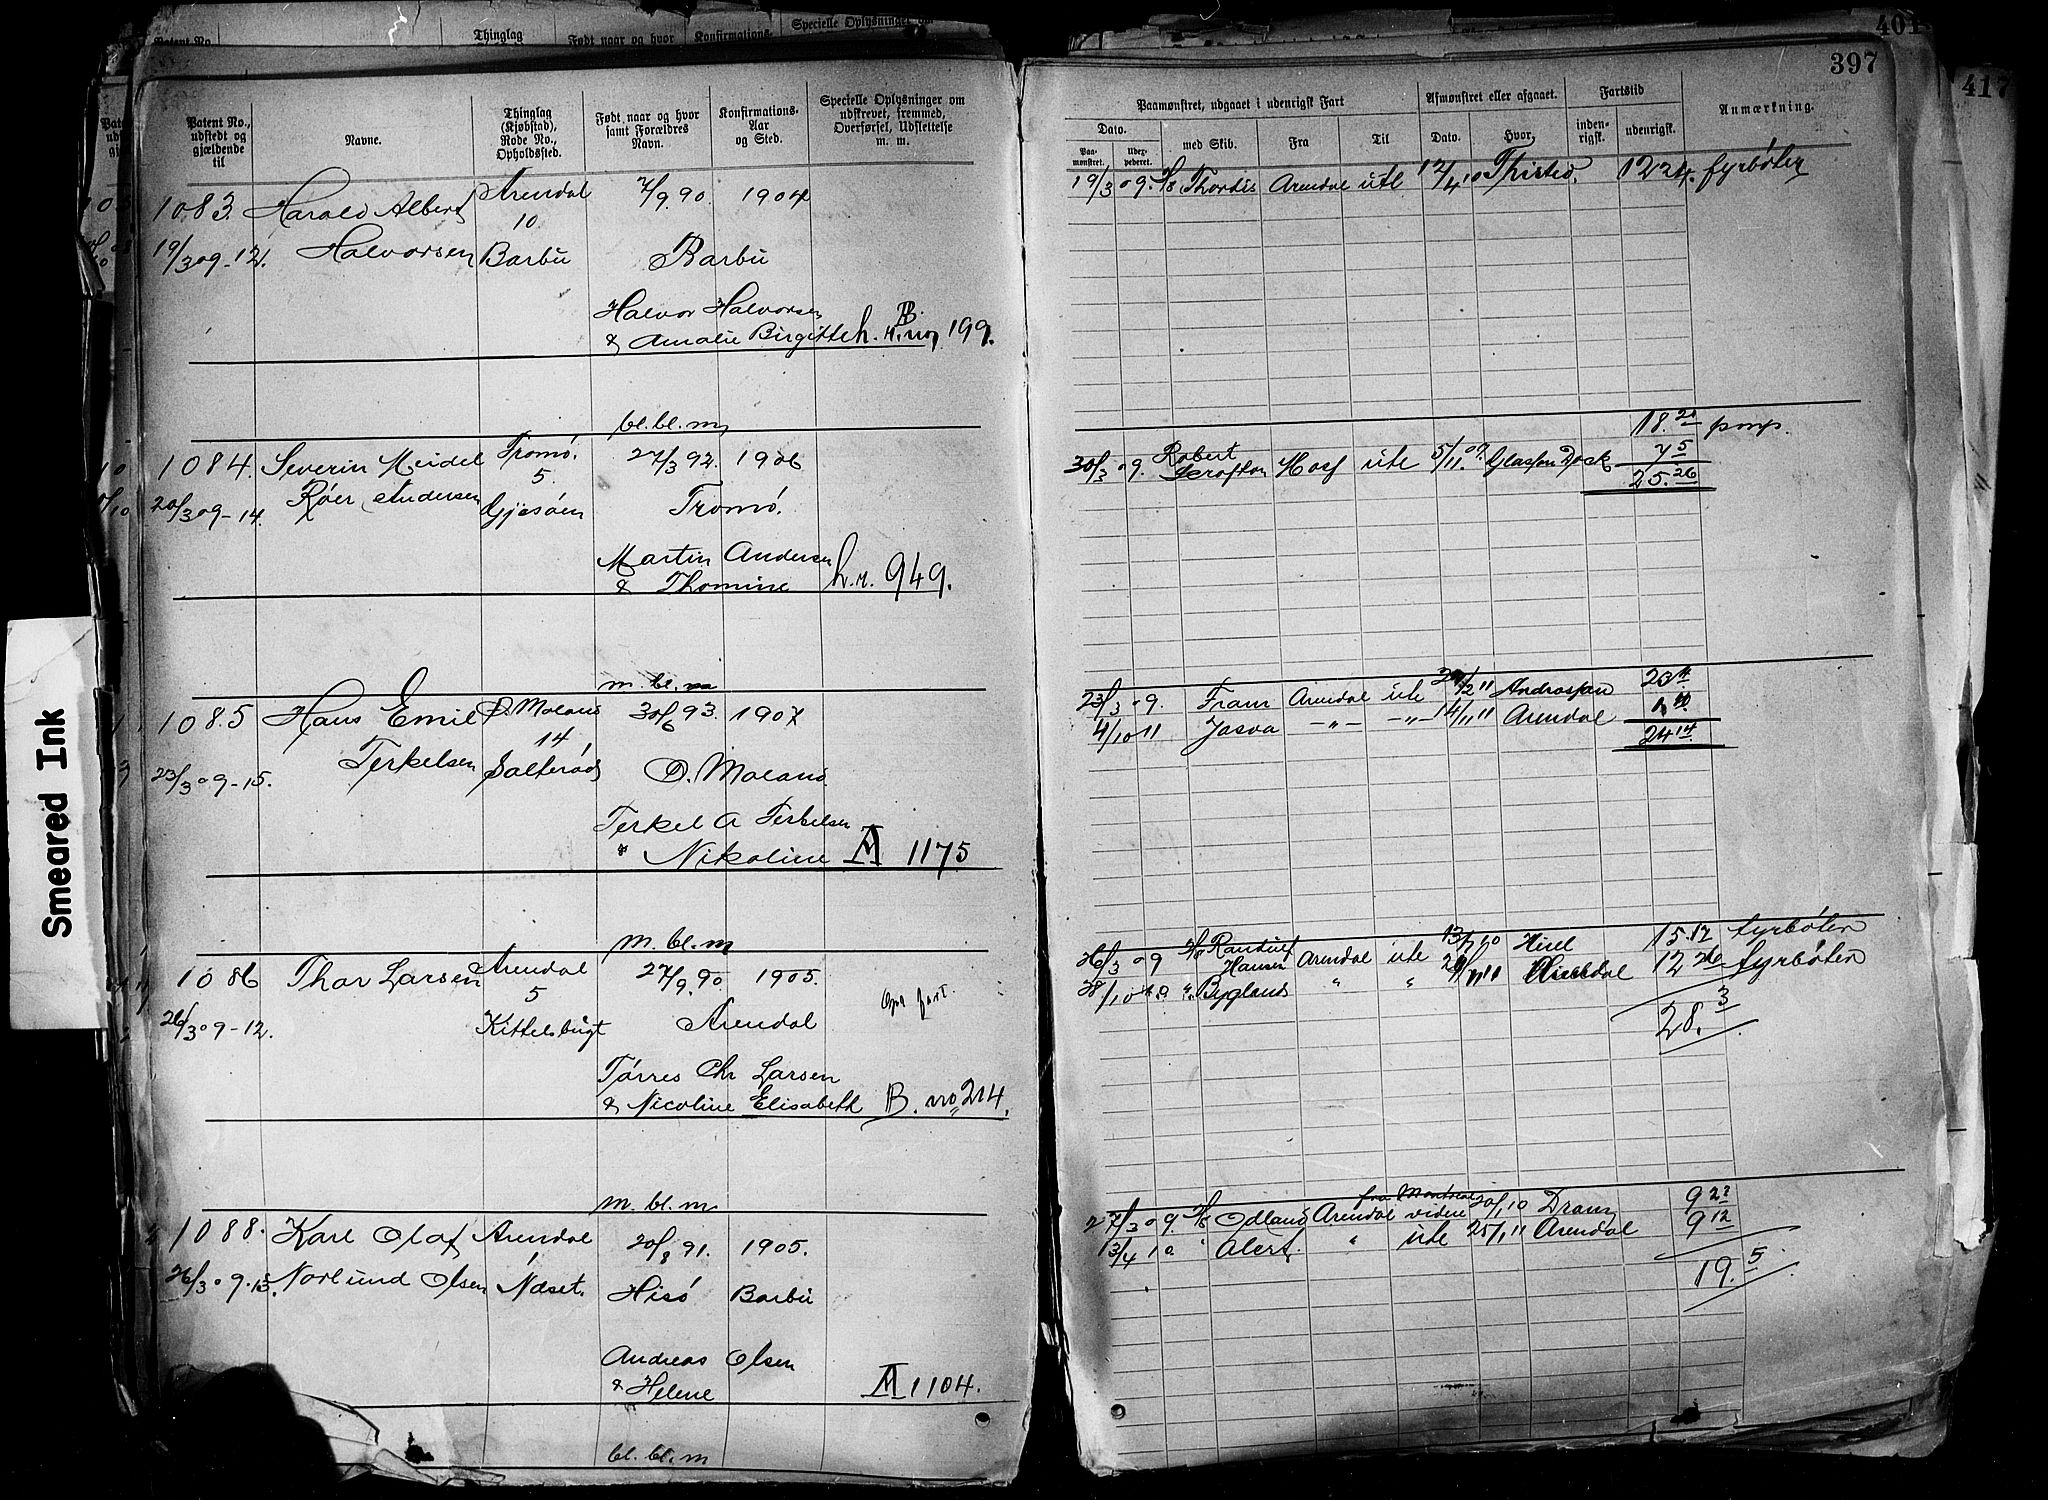 Smeared Ink
401
417
397
Thinglag Født naar og hvor Konfirmations- Specielle Oplysninger om
Patent No., udstedt og gjældende til
Navne.
Thinglag (Kjøbstad), Rode No., Opholdssted.
Født naar og hvor samt Forældres Navn.
Konfirmations-Aar og Sted.
Specielle Oplysninger om udskrevet, fremmed, Overførsel, Udslettelse m. m.
Paamønstret, udgaaet i udenrigsk Fart
Afmønstret eller afgaaet.
Fartstid
Anmærkning.
Dato.
Paa-mønstret.
Udex-pederet.
med Skib.
Fra
Til
Dato.
Hvor,
inden-rigsk.
udenrigsk.
1083. Harald Albert Arendal 7/9.90 1904
10
19/3 09-12. Halvorsen Barbu Barbu
Halvor Halvorsen
& Amalie Birgitte h. 199.
bl. bl. m
19/3 09. Thordis Arendal utl 12/4 10 Thisted. 12 24. fyrbøter
1084. Severin Meidel Tromø. 27/3 92. 1906
Røer Andersen 5.
20/3 09-14. Gjesøen Tromø.
Martin Andersen
& Thomine 949.
m. bl.
18. 21 pmp.
30/3 09. Robert ute 5/11.09. Glasson Dock 7 5
25. 26
1085 Hans Emil Ø. Moland 30/6 93. 1907
14
23/3 09-15. Terkelsen Salterød Ø. Moland
Terkel A Terkelsen
" Nikoline A 1175
m. bl. m
23/3 09. Fram Arendal ute Androssan 23 11
4/10 11 Jasva -"- -"- 14/11 11 Arendal
24 14
1086 Thor Larsen Arendal 27/9.90. 1905.
5
26/3 09-12. Kittelsbugt Arendal
Tørres Chr Larsen
& Nicoline Elisabeth B. no 214.
m. bl. m
26/3 09 Randulf Hansen Arendal ute Hisel 15.17 fyrbøter
28/10 Byglands " " 12 26 fyrbøter
28. 3
1088. Karl Olaf Arendal 20/8 91. 1905.
1
26/3 09.13. Norlund Olsen Næset. Hisø Barbu
Andreas Olsen
& Helene A 1104.
bl. bl. m
fra Montreal
27/3 09. Odland Arendal videre 20/1 10 Dram 9 23
13/4 10 " Alert. " ute 25/1 11 Arendal 9 12
19. 5